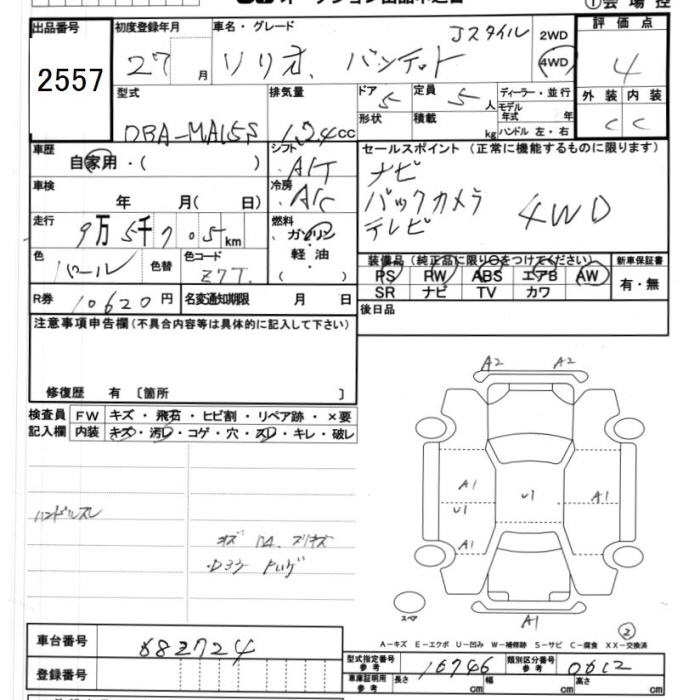 出品番号 初度登録年月 車名・グレード Jスタイル 2WD 評価点
2557 27 月 ソリオ バンデット 4WD 4
型式 排気量 ドア 5 定員 5人 ディーラー・並行 外装 内装
DBA-MA15S 1.24cc 形状 積載 kg モデル年式 年 C C
ハンドル 左・右
車歴 シフト セールスポイント(正常に機能するものに限ります)
自家用・( ) A/T ナビ
車検 冷房 バックカメラ 4WD
年 月( 日) A/C テレビ
走行 燃料
9万5千705km ガソリン
軽油
( )
色 パール 色替 色コード Z7T
装備品(純正品に限り○をつけてください) 新車保証書
PS RW ABS エアB AW 有・無
SR ナビ TV カワ
R券 10620円 名変通知期限 月 日 後日品
注意事項申告欄(不具合内容等は具体的に記入して下さい)
修復歴 有 〔箇所 〕
検査員 FW キズ・飛石・ヒビ割・リペア跡・×要
記入欄 内装 キズ・汚レ・コゲ・穴・スレ・キレ・破レ
ハンドルスレ
A2 A2
A1 U1 A1
U1
A1
スペア A1
②
A-キズ E-エクボ U-凹み W-補修跡 S-サビ C-腐食 XX-交換済
車台番号 682724
型式指定番号 参考 16746 類別区分番号 参考 0612
登録番号 車庫証明用 参考 長さ cm 幅 cm 高さ cm